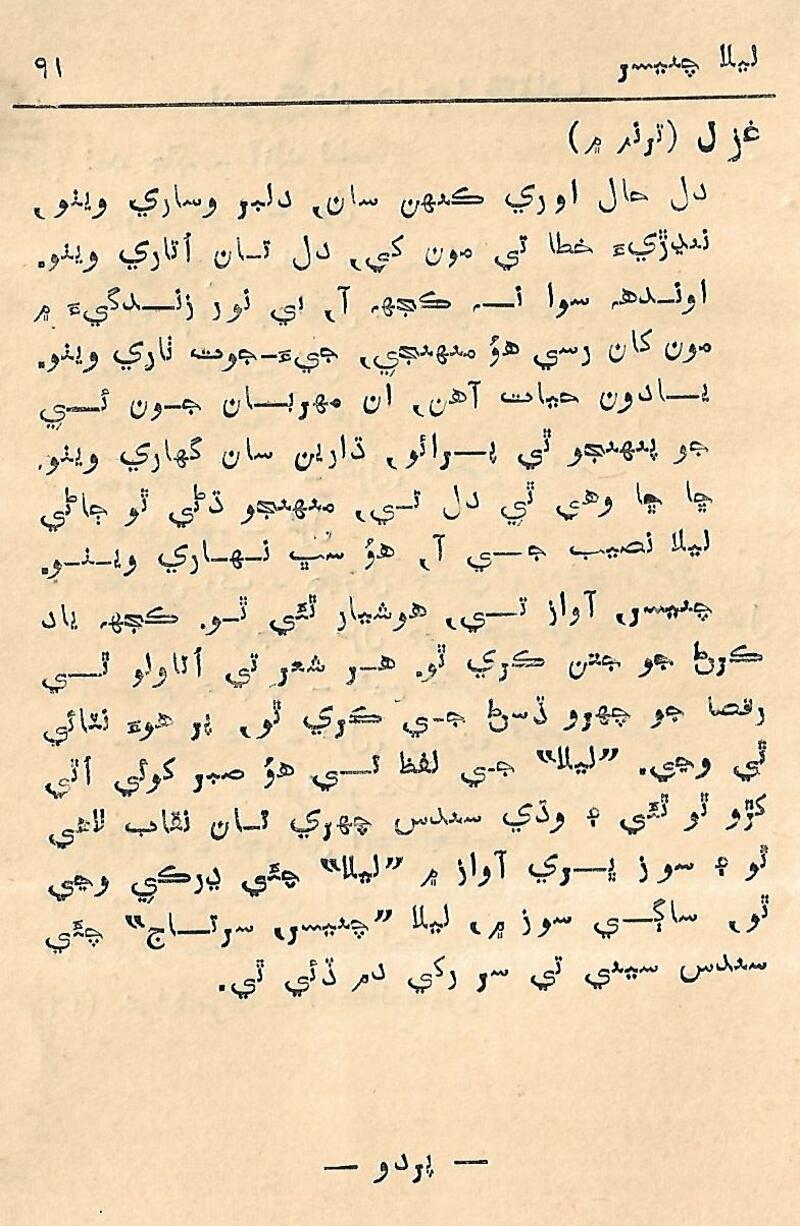 ليلا چنيسر
٩١
غزل (ترنر ۾)
دل حال اوري ڪنهن سان، دلبر وساري ويئو،
ننڍڙيءَ خطا تي مون کي، دل تان اُتاري ويئو.
اونده سوا نہ ڪجهہ آ، بي نور زندگيءَ ۾
مون کان رسي هوُ منهنجي، جيءَ-جوت ٺاري ويئو.
يادون حيات آهن، ان مهربان جون ئي
جو پنهنجو ٿي پرائو، ڌارين سان گهاري ويئو.
ڇا ڇا وهي ٿي دل تي، منهنجو ڌڻي ٿو ڄاڻي
ليلا نصيب جي آ، هوُ سڀ نهاري ويئو.
چنيسر، آواز تي، هوشيار ٿئي ٿو. ڪجهہ ياد
ڪرڻ جو جتن ڪري ٿو. هر شعر تي اُتاولو ٿي
رقصا جو چهرو ڏسڻ جي ڪري ٿو، پر هوءَ نٽائي
ٿي وڃي. ”ليلا“ جي لفظ تي هوُ صبر کوئي اُٿي
کڙو ٿو ٿئي ۽ وڌي سندس چهري تان نقاب لاهي
ٿو ۽ سوز ڀري آواز ۾ ”ليلا“ چئي ڍرڪي وڃي
ٿو، ساڳي سوز ۾، ليلا ”چنيسر، سرتاج“ چئي
سندس سيني تي سر رکي دم ڏئي ٿي.
— پردو —